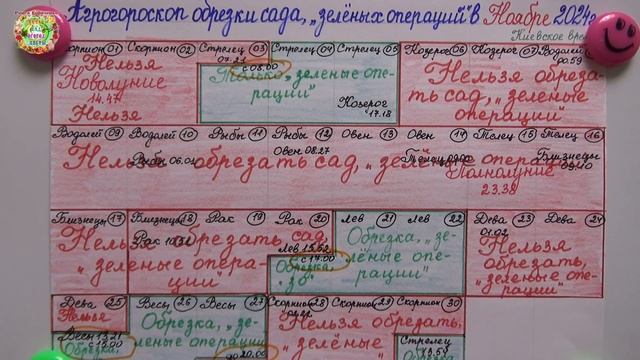 Агрогороскоп обрезки сада, "зелёных операций" в Ноябре 2024г
Киевское вре
Скорпион 01 Скорпион 02 Стрелец 03 Стрелец 04 Стрелец 05 Козерог 06 Козерог 07 Водолей
07.21 00.59
с 08.00
Нельзя
Новолуние
14.47
Нельзя
Только "зеленые опе-
рации"
Козерог
17.18
Нельзя обреза-
ть сад, "зеленые
операций"
Водолей 09 Водолей 10 Рыбы 11 Рыбы 12 Овен 13 Овен 14 Телец 15 Телец 16
Рыбы 06.0 Овен 08.27 Телец Близнецы
Нельзя обрезать сад, "зелёные операции
Полнолуние
23.38
Близнецы 17 Близнецы 18 Рак 19 Рак 20 Лев 21 Лев 22 Дева 23 Дева 24
Рак Лев 15.52 01.02
с 17.00
Нельзя обрезать сад,
"зеленые опера-
ции"
Обрезка,
"зо"
Обрезка, "зе-
лёные опе-
рации"
Нельзя
обрезать,
"зеленые опе-
рации"
Дева 25 Весы 26 Весы 27 Скорпион 28 Скорпион 29 Скорпион 30
Нельзя
Весы 13.21
Обрезка,
Обрезка, "зе-
леные операции
до 20.00
Нельзя обрезать.
"зелёные
Стрелец